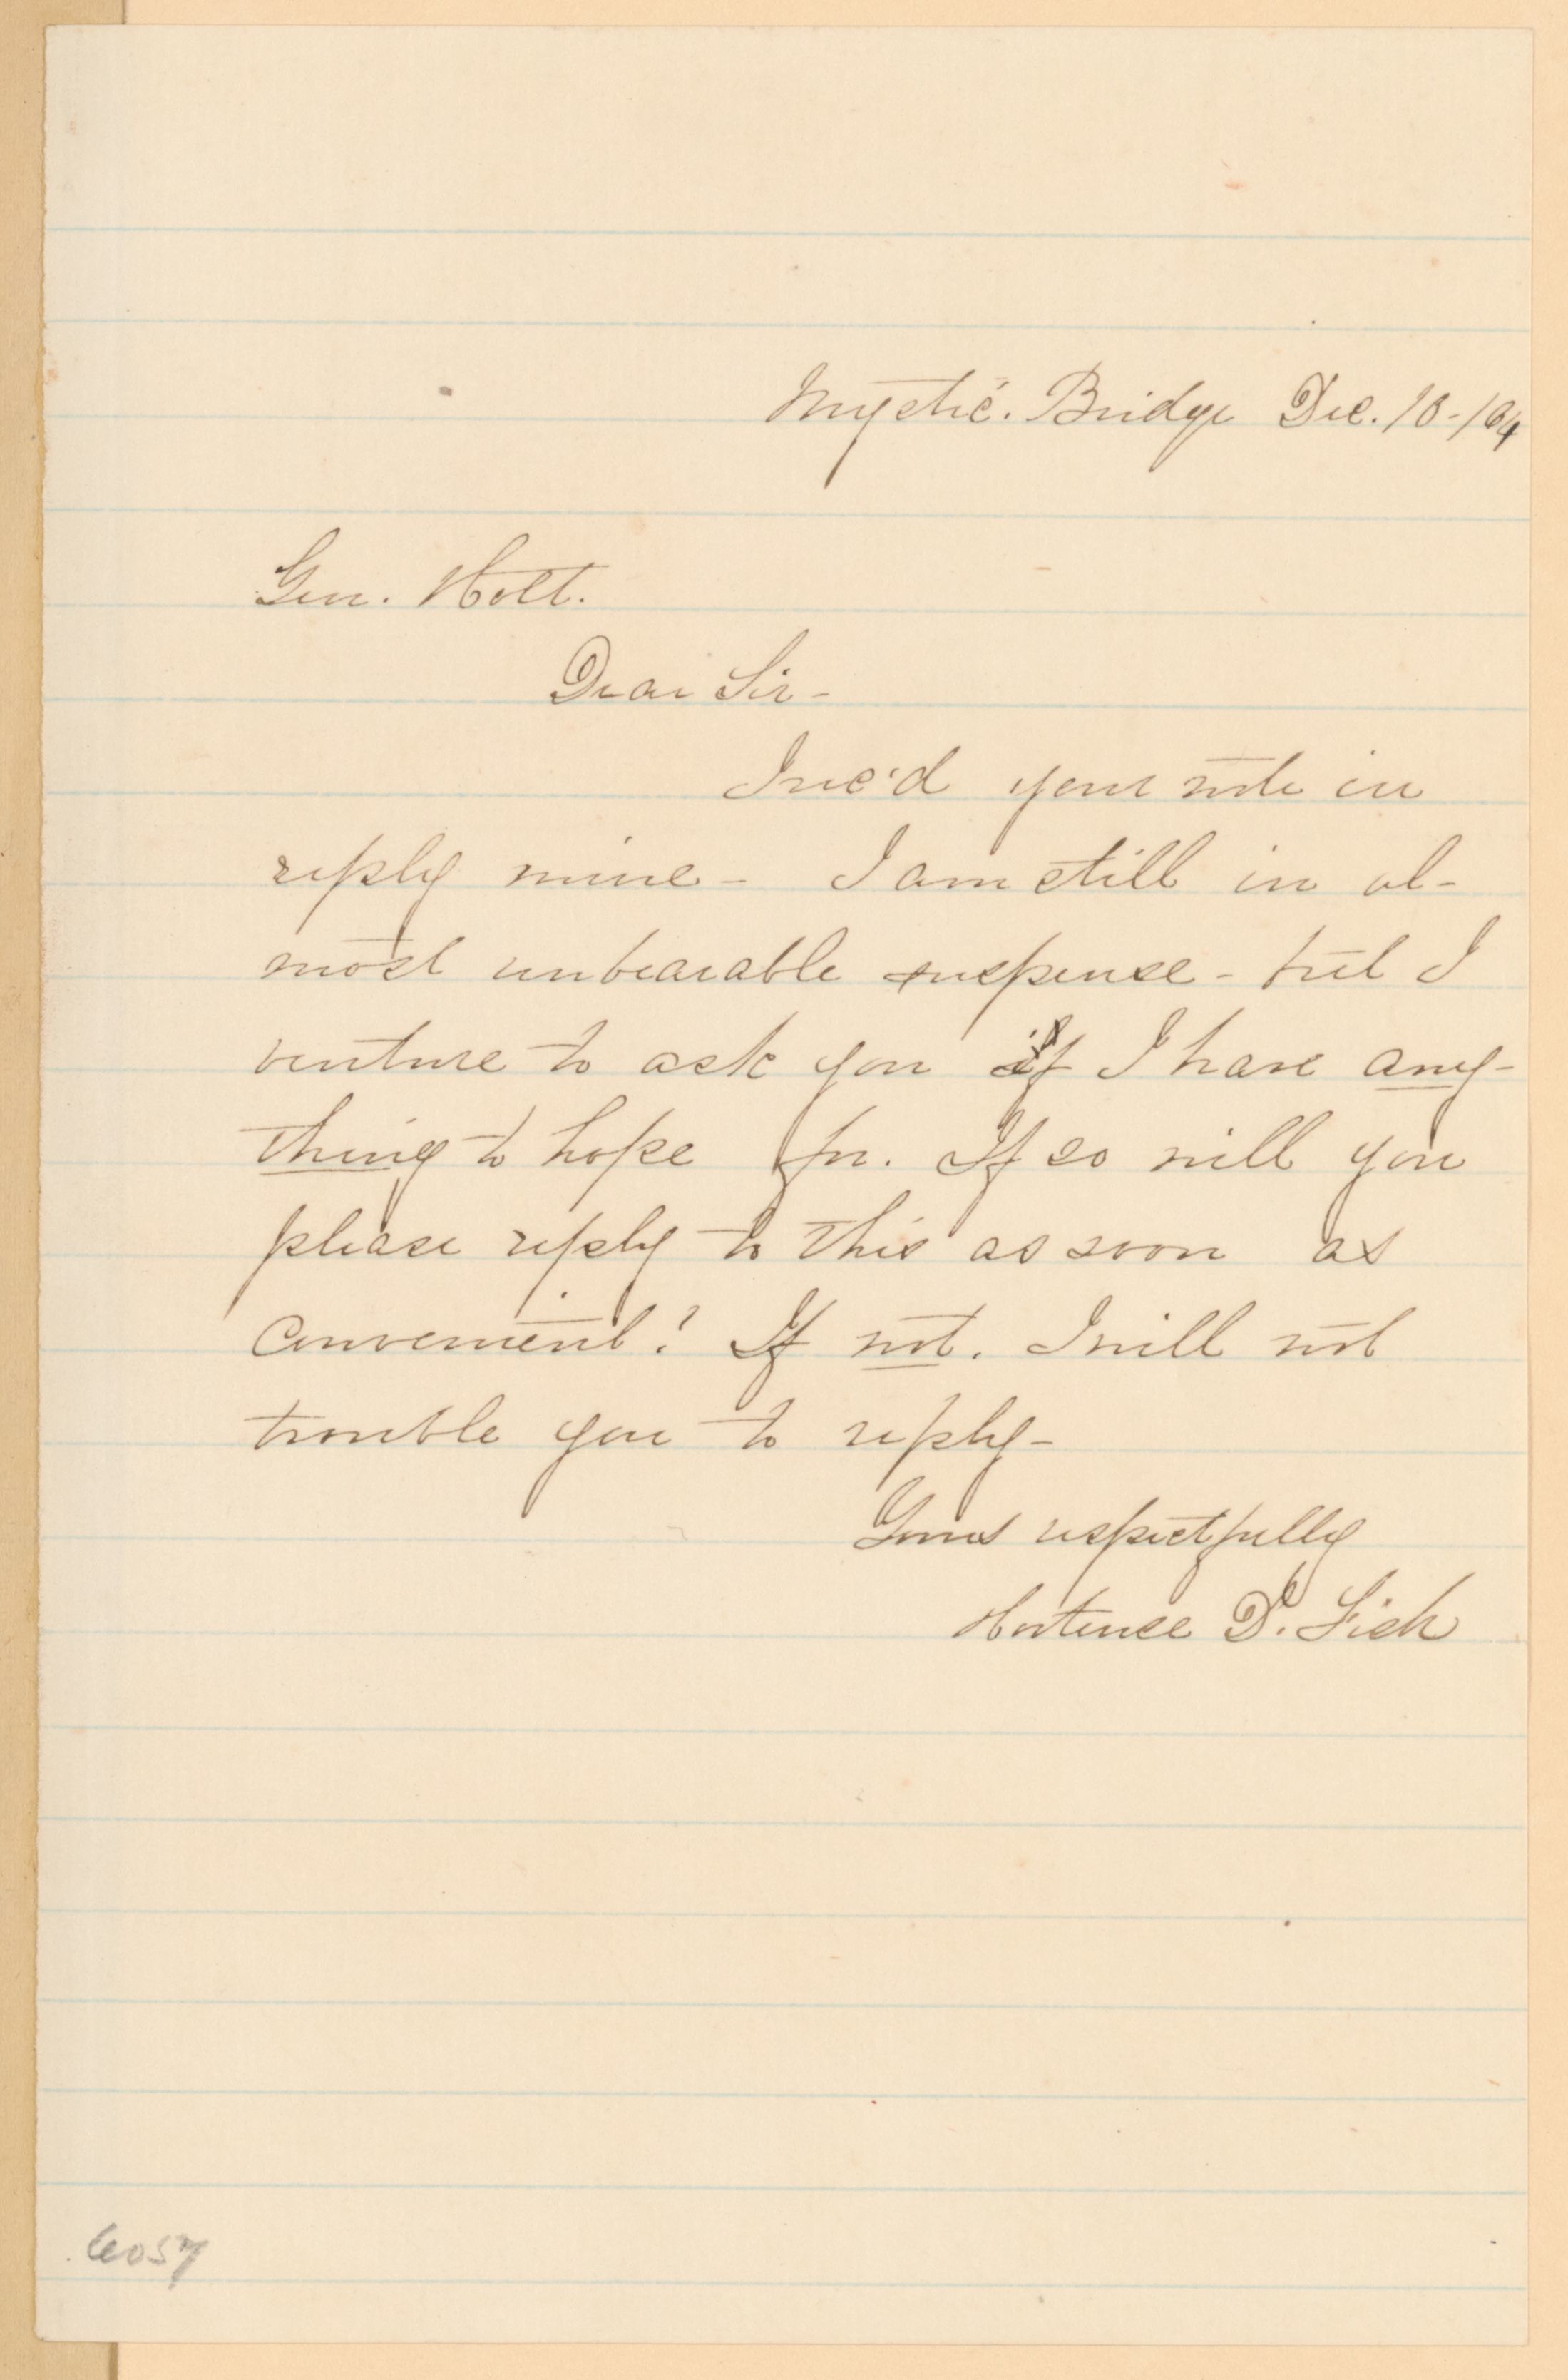 Mystic. Bridge Dec. 10-/64
Gen. Holt.
Dear Sir-
I rec'd your note in
reply mine - I am still in al-
most unbearable suspense - but I
venture to ask you if I have any-
thing to hope for. If so will you
please reply to this as soon as
convenient? If not. I will not
trouble you to reply-
Yours respectfully
Hortense D. Fish
6057